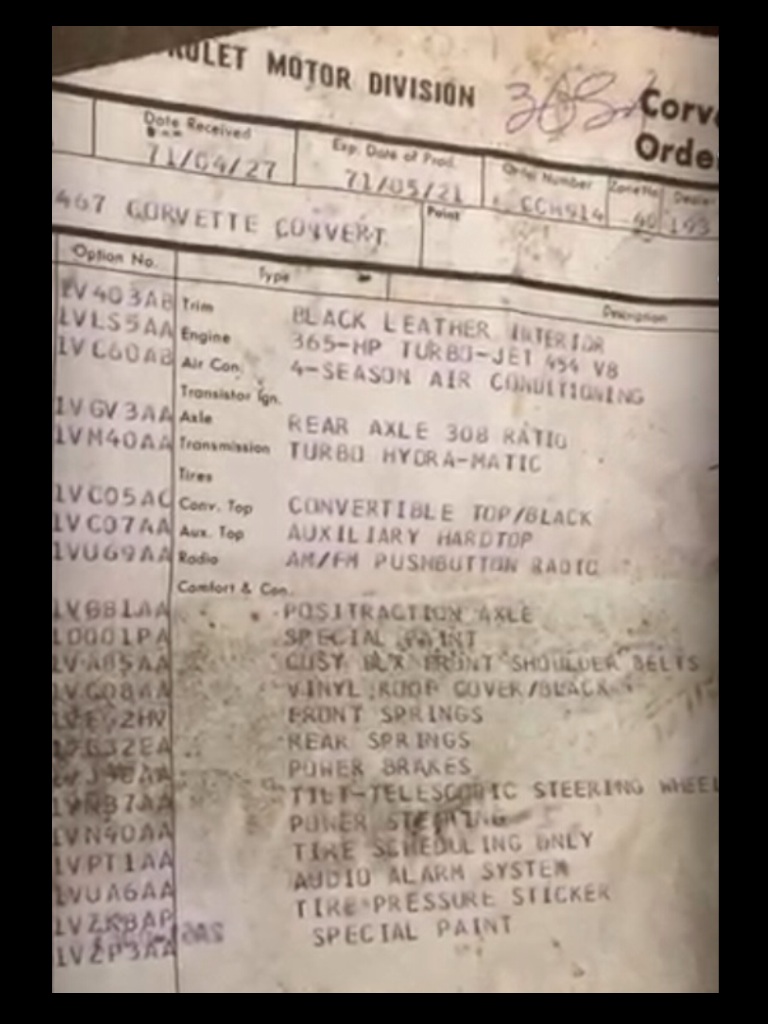 ROLET MOTOR DIVISION Corv
Orde
Date Received Exp. Date of Prod. Order Number Zone No. Dealer
71/04/27 71/05/21 40 193
467 CORVETTE CONVERT Point
Option No. Type Description
1V403AB Trim BLACK LEATHER INTERIOR
1VLS5AA Engine 365-HP TURBO-JET 454 V8
1VC60AB Air Con. 4-SEASON AIR CONDITIONING
Transistor Ign.
1VGV3AA Axle REAR AXLE 308 RATIO
1VM40AA Transmission TURBO HYDRA-MATIC
Tires
1VC05AC Conv. Top CONVERTIBLE TOP/BLACK
1VC07AA Aux. Top AUXILIARY HARDTOP
1VU69AA Radio AM/FM PUSHBUTTON RADIO
Comfort & Con.
1VG81AA POSITRACTION AXLE
10001PA SPECIAL PAINT
1VA85AA FRONT SHOULDER BELTS
1VC08AA VINYL ROOF COVER/BLACK
FRONT SPRINGS
REAR SPRINGS
POWER BRAKES
1VN37AA TILT-TELESCOPIC STEERING WHEEL
1VN40AA POWER STEERING
1VPT1AA TIRE SCHEDULING ONLY
1VUA6AA AUDIO ALARM SYSTEM
1VZK8AP TIRE PRESSURE STICKER
1VZP3AA SPECIAL PAINT